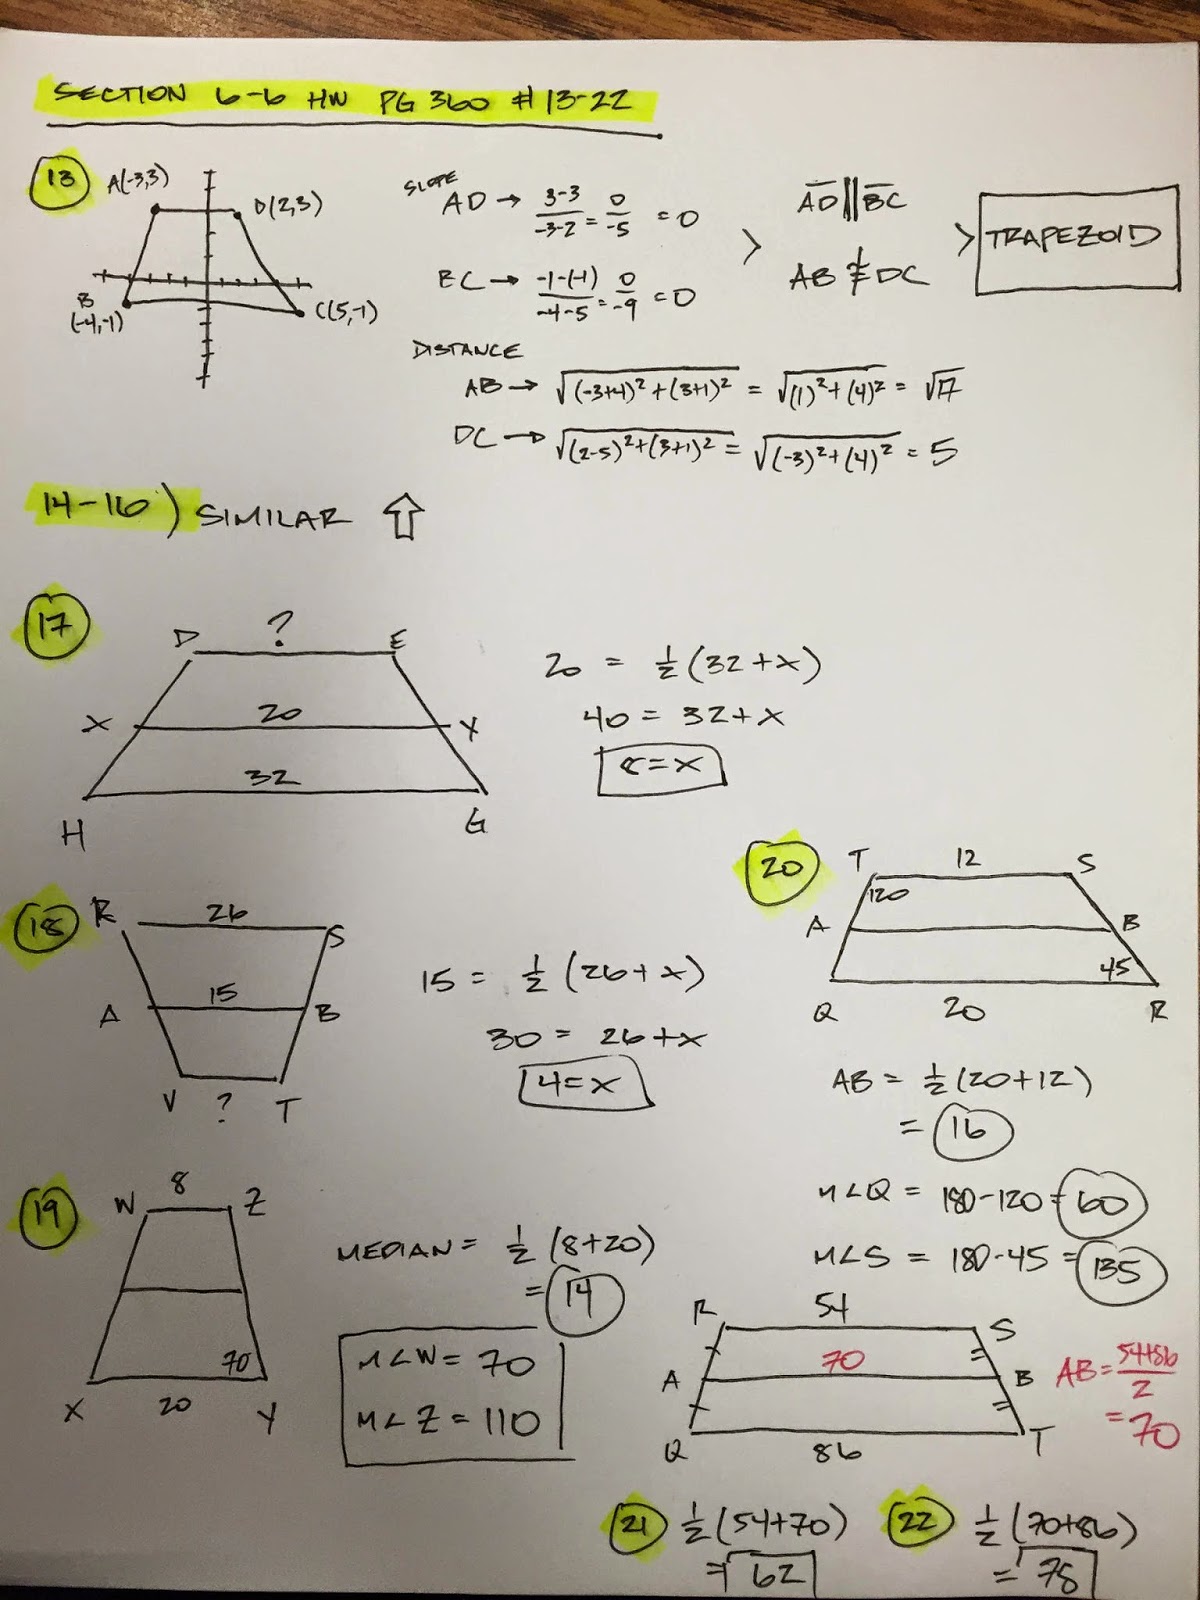 SECTION 6-6 HW PG 360 # 13-22
13
A(-3,3)
D(2,3)
B
(-4,-1)
C(5,-1)
SLOPE
AD → 3-3/-3-2 = 0/-5 = 0
BC → -1-(-1)/-4-5 = 0/-9 = 0
> AD || BC
AB ≠ DC
> TRAPEZOID
DISTANCE
AB → √(-3+4)² + (3+1)² = √(1)² + (4)² = √17
DC → √(2-5)² + (3+1)² = √(-3)² + (4)² = 5
14-16) SIMILAR ⇧
17
D ? E
X 20 Y
32
H G
20 = ½ (32 + x)
40 = 32 + x
8 = x
18
R 26 S
A 15 B
V ? T
15 = ½ (26 + x)
30 = 26 + x
4 = x
20
T 12 S
120
A B
45
Q 20 R
AB = ½ (20+12)
= 16
M∠Q = 180-120 = 60
M∠S = 180-45 = 135
19
W 8 Z
70
X 20 Y
MEDIAN = ½ (8+20)
= 14
M∠W = 70
M∠Z = 110
R 54 S
A 70 B
Q 86 T
AB = 54+86/2
= 70
21 ½ (54+70)
= 62
22 ½ (70+86)
= 78